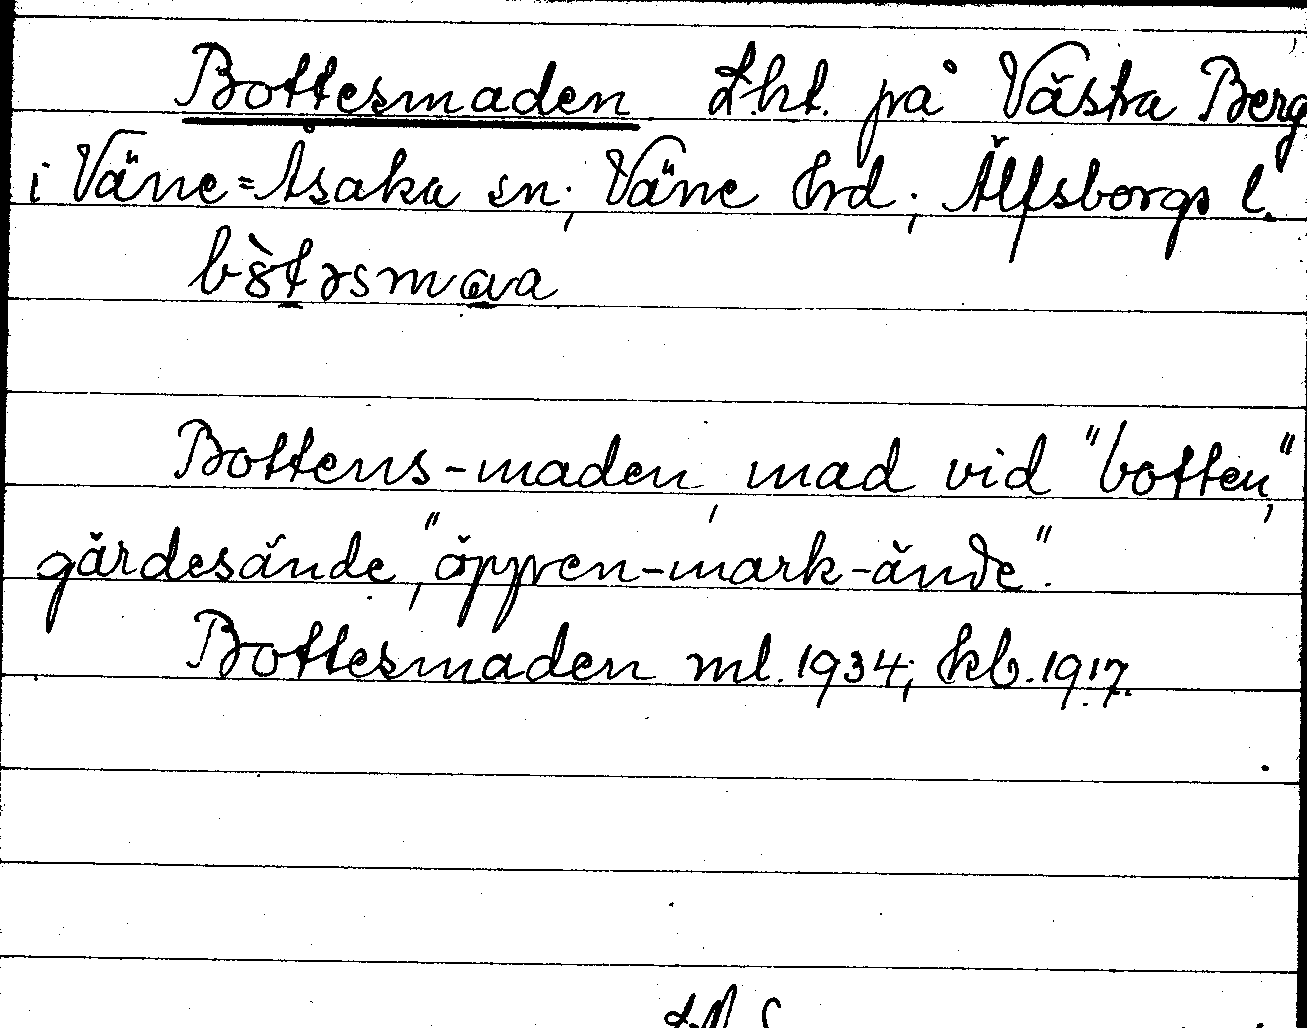 Bottesmaden Lht. på Västra Berg
i Väne=Åsaka sn; Väne hrd; Älfsborgs l.
Bottens-maden, mad vid "botten",
gärdesände, "öppen-mark-ände".
Bottesmaden ml. 1934; kb. 1917.